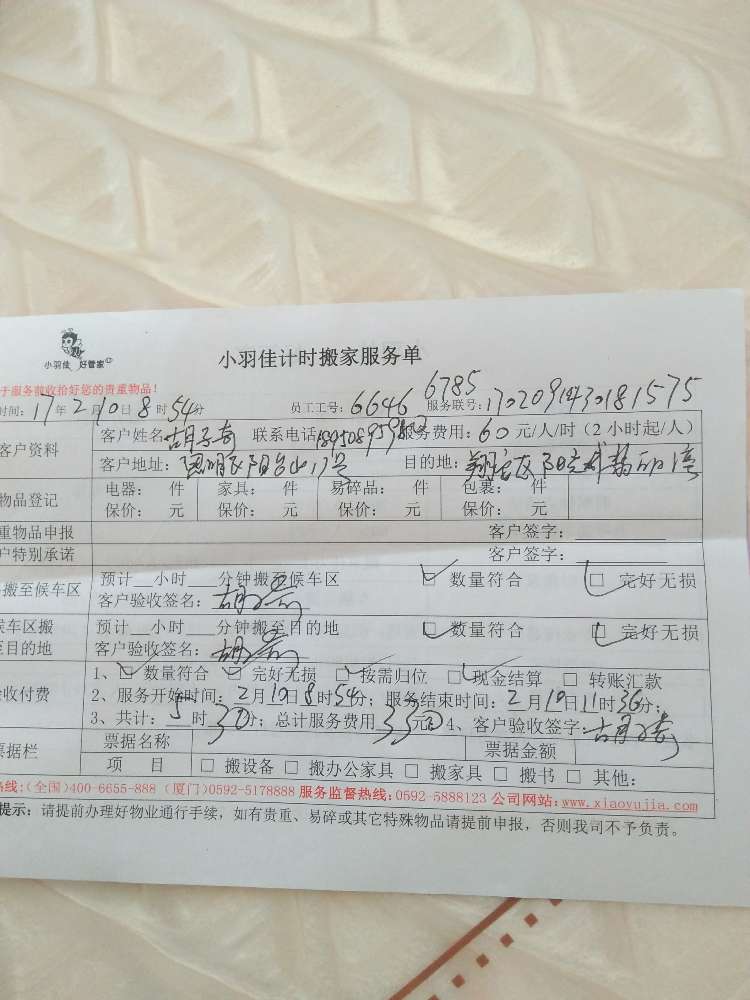 小羽佳 好管家
小羽佳计时搬家服务单
于服务前收拾好您的贵重物品！
时间：17年2月10日8时54分 员工工号：6646 6785 服务联号：
客户资料 客户姓名 联系电话 服务费用：60元/人/时（2小时起/人）
客户地址： 目的地：
物品登记 电器： 件 家具： 件 易碎品： 件 包裹： 件
保价： 元 保价： 元 保价： 元 保价： 元
重物品申报 客户签字：
户特别承诺 客户签字：
搬至候车区 预计__小时___分钟搬至候车区 数量符合 完好无损
客户验收签名：
候车区搬 预计__小时___分钟搬至目的地 数量符合 完好无损
至目的地 客户验收签名：
1、 数量符合 完好无损 按需归位 现金结算 转账汇款
收付费 2、服务开始时间：2月10日8时54分；服务结束时间：2月10日11时36分；
3、共计：5时30分；总计服务费用 元 4、客户验收签字：
票据栏 票据名称 票据金额
项 目 □ 搬设备 □ 搬办公家具 □ 搬家具 □ 搬书 □ 其他：
热线：(全国)400-6655-888 (厦门)0592-5178888 服务监督热线：0592-5888123 公司网站：www.xiaoyujia.com
提示：请提前办理好物业通行手续，如有贵重、易碎或其它特殊物品请提前申报，否则我司不予负责。